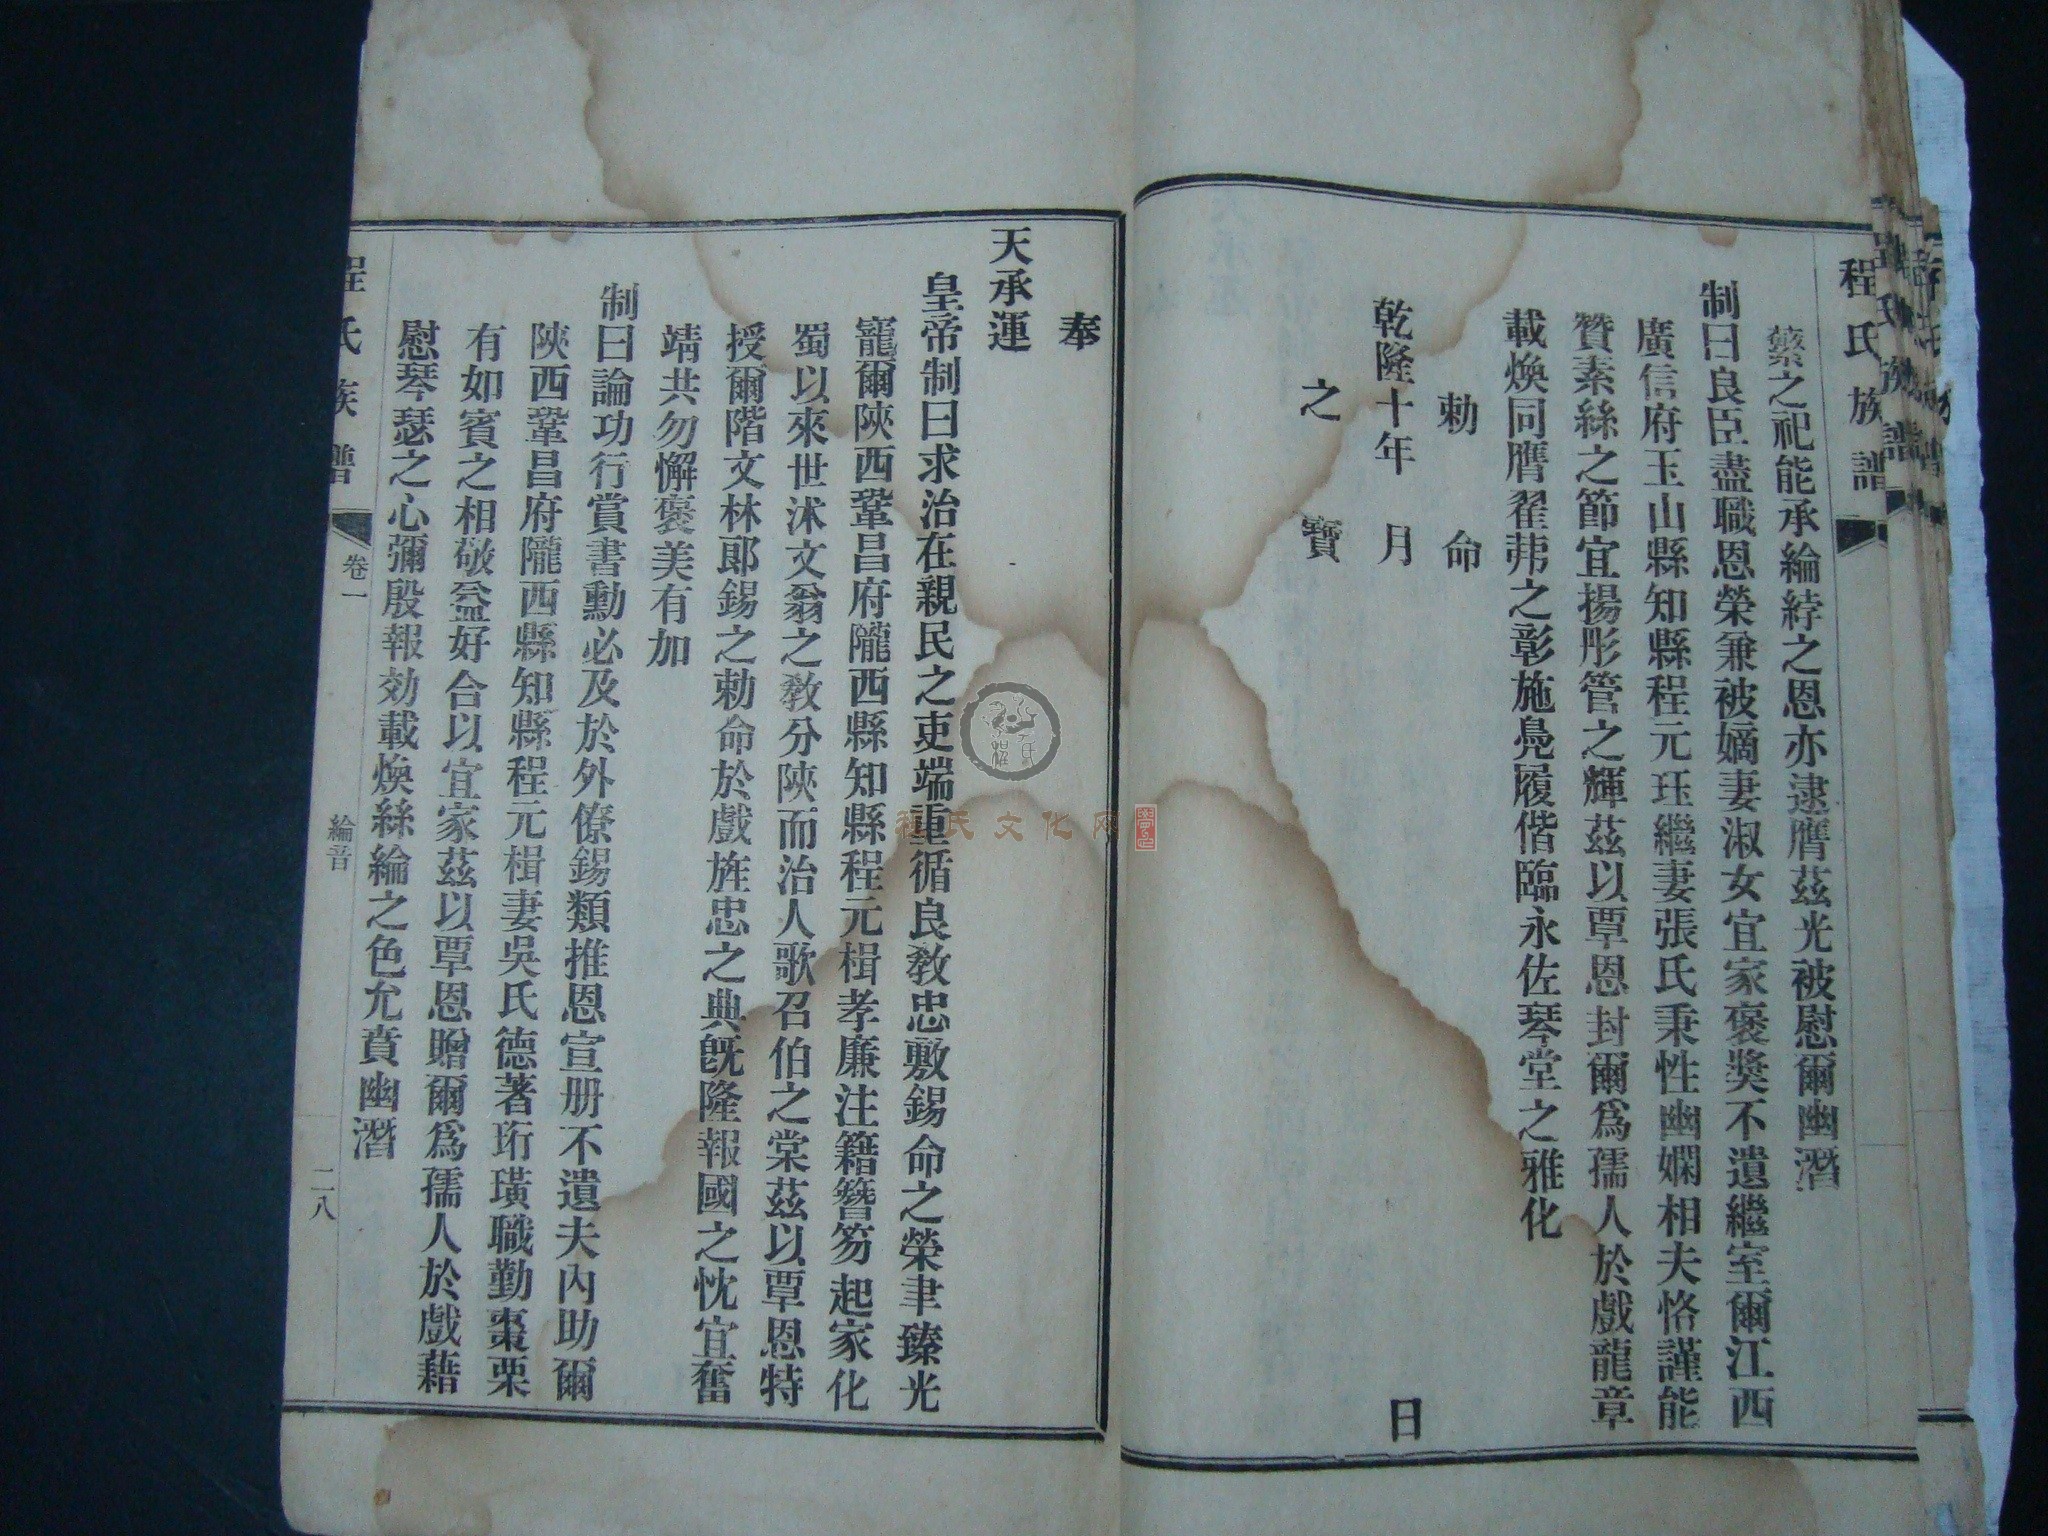 程氏族譜
蘩之祀能承綸綍之恩亦逮膺茲光被慰爾幽潛
制曰良臣盡職恩榮兼被嫡妻淑女宜家褒獎不遺繼室爾江西
廣信府玉山縣知縣程元珏繼妻張氏秉性幽嫻相夫恪謹能
贊素絲之節宜揚彤管之輝茲以覃恩封爾爲孺人於戲龍章
載煥同膺翟茀之彰施鳧履偕臨永佐琴堂之雅化
勅命
乾隆十年 月 日
之寶
奉
天承運
皇帝制曰求治在親民之吏端重循良教忠敷錫命之榮聿臻光
寵爾陝西鞏昌府隴西縣知縣程元楫孝廉注籍簪笏起家化
蜀以來世沭文翁之教分陝而治人歌召伯之棠茲以覃恩特
授爾階文林郎錫之勅命於戲旌忠之典旣隆報國之忱宜奮
靖共勿懈褒美有加
制曰論功行賞書勳必及於外僚錫類推恩宣册不遺夫內助爾
陝西鞏昌府隴西縣知縣程元楫妻吳氏德著珩璜職勤棗栗
有如賓之相敬益好合以宜家茲以覃恩贈爾爲孺人於戲藉
慰琴瑟之心彌殷報効載煥絲綸之色允賁幽潛
程氏族譜 卷一 綸音 二八
程氏文化网